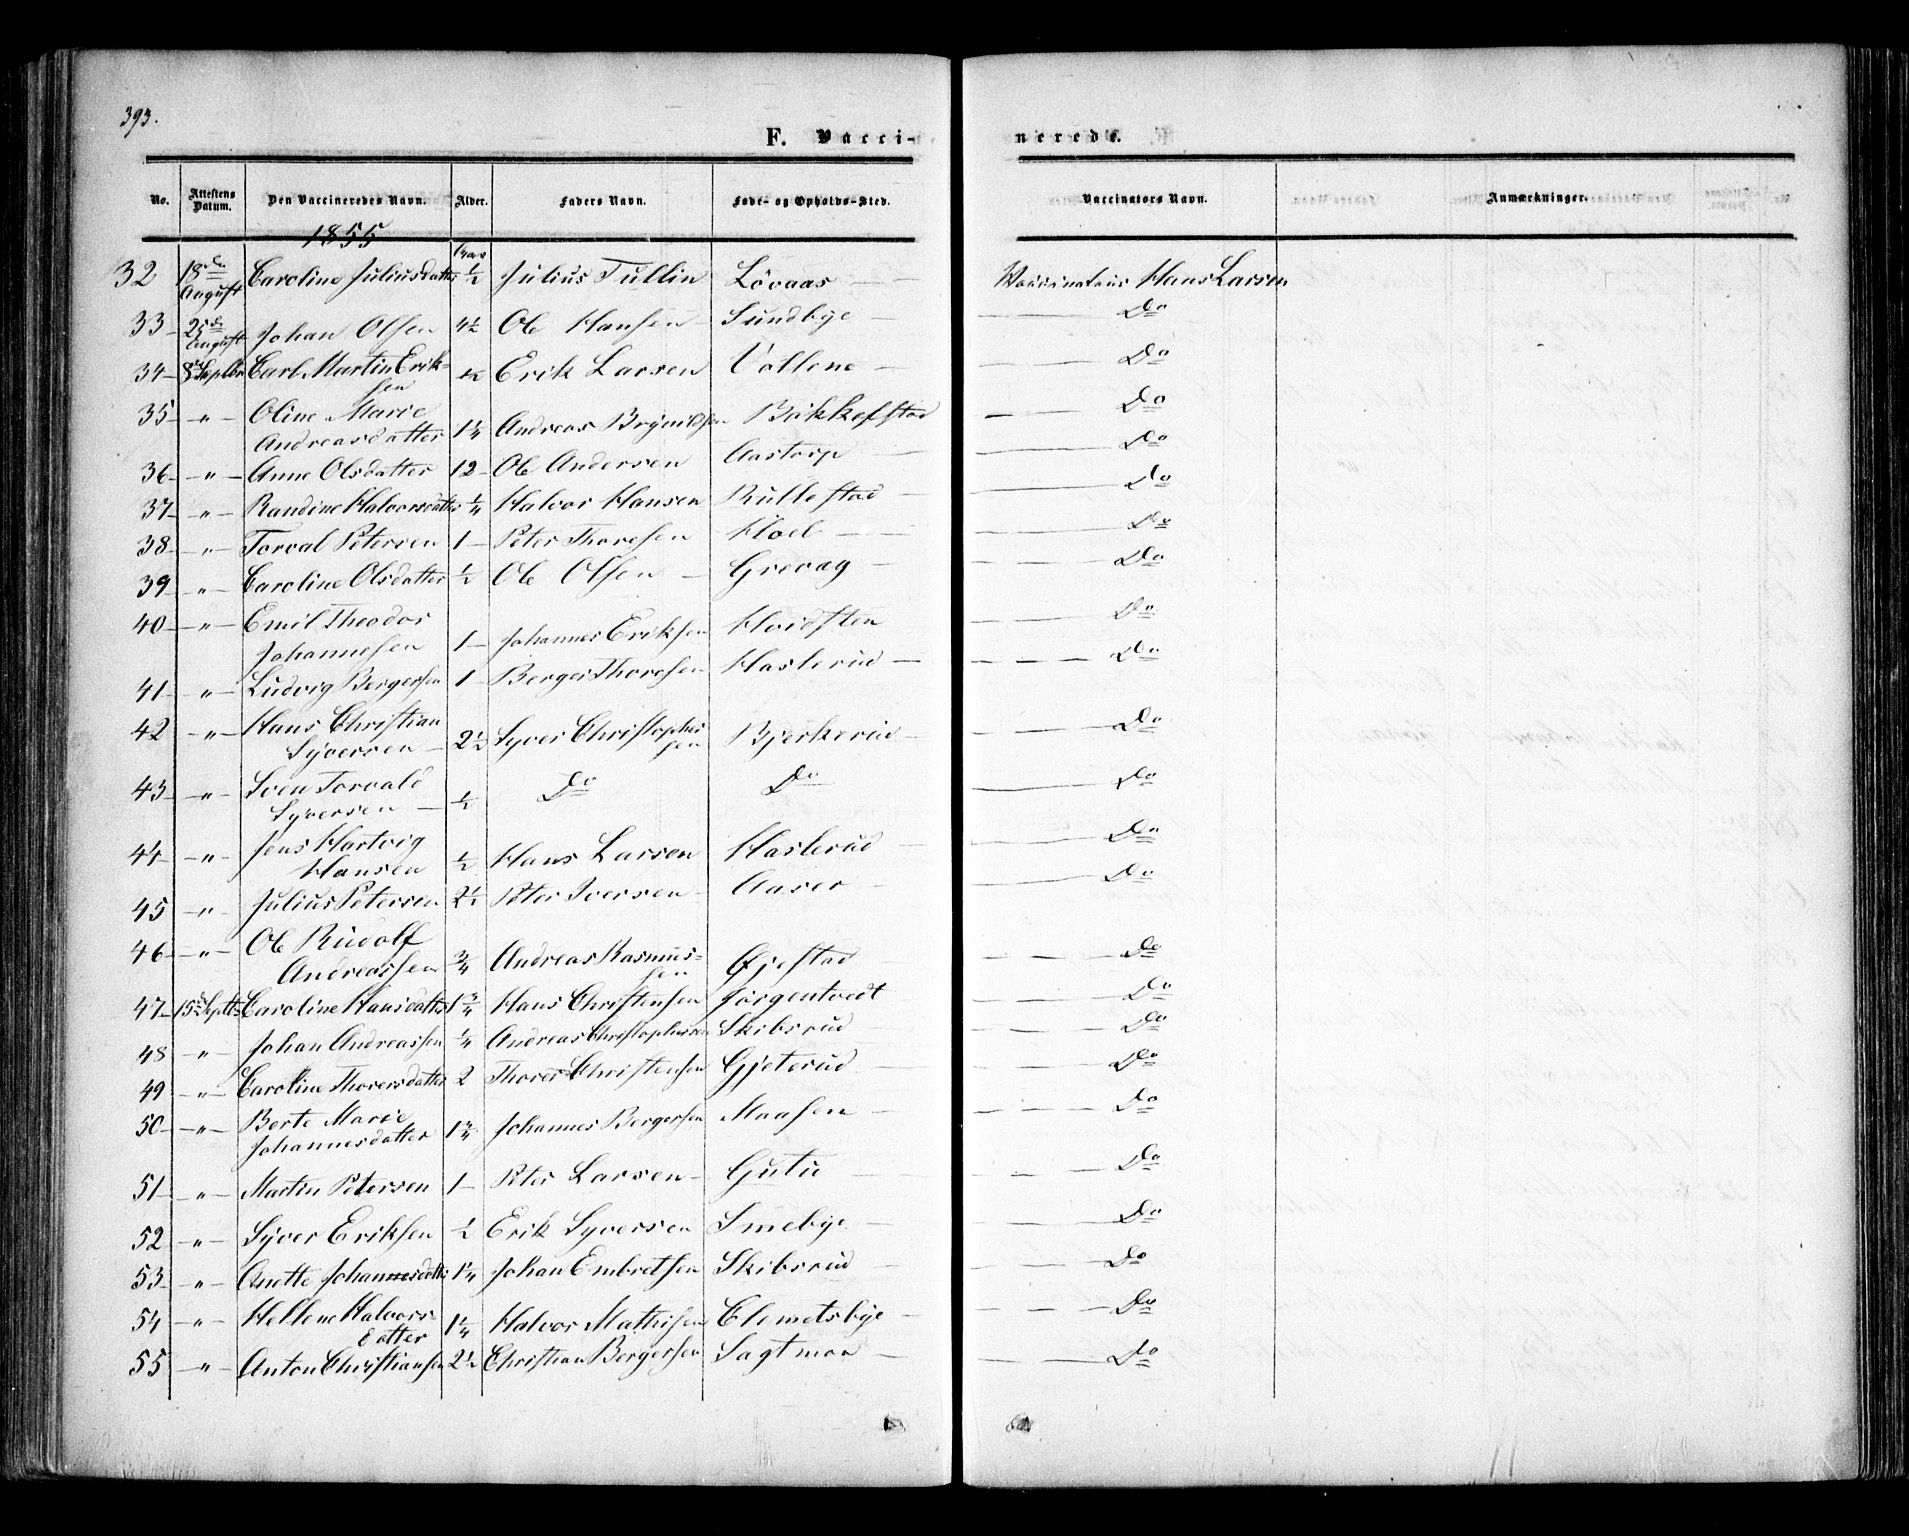 393.
F. Vacci- nerede.
No. Attestens Datum. Den Vaccineredes Navn. Alder. Faders Navn. Føde- og Opholds-Sted. Vaccinators Navn. Anmærkninger.
1855
32 18de August Caroline Juliusdatter ½ Julius Tullin Lövaas — Vaccinateur Hans Larsen
33 25de August Johan Olsen 4½ Ole Hansen — Sundbye — Do
34 8de Septbr Carl Martin Erik-
sen ½ Erik Larsen Vollene — Do
35 — " — Oline Marie
Andreasdatter 1¼ Andreas Brynildsen Bakkefstad Do
36 — " — Anne Olsdatter 12 Ole Andersen Aastorp — Do
37 — " — Randine Halvorsdatter ¼ Halvor Hansen Rullestad — Do
38 — " — Torval Petersen 1 Peter Thoresen Hoel — Do
39 — " — Caroline Olsdatter ½ Ole Olsen — Grevag — Do
40 — " — Emil Theodor
Johannesen 1 Johannes Eriksen Hvidsten Do
41 — " — Ludvig Bergersen 1 Berger Thoresen Haslerud — Do
42 — " — Hans Christian
Syversen — 2½ Syver Christopher
sen Bjerkerud — Do
43 — " — Sven Torvald
Syversen — ½ Do Do Do
44 — " — Jens Hartvig
Hansen ½ Hans Larsen Haslerud — Do
45 — " — Julius Petersen 2½ Peter Iversen — Aaser — Do
46 — " — Ole Rudolf
Andreassen ¾ Andreas Rasmus-
sen Øjestad — Do
47 15de Septb Caroline Hansdatter 1¾ Hans Christensen Jörgentvedt Do
48 — " — Johan Andreassen ¼ Andreas Christophersen Skibsrud Do
49 — " — Caroline Thorersdatter 2 Thorer Christensen Gjeterud — Do
50 — " — Berte Marie
Johannesdatter 1¾ Johannes Bergersen Maasen — Do
51 — " — Martin Petersen 1 Peter Larsen — Gutu — Do
52 — " — Syver Eriksen ½ Erik Syversen Smebye — Do
53 — " — Anette Johannesdatter 1¼ Johan Embretsen Skibsrud — Do
54 — " — Hellene Halvors
datter 1¼ Halvor Mathisen Clemetsbye — Do
55 — " — Anton Christiansen 2½ Christian Bergersen Sagtmon — Do